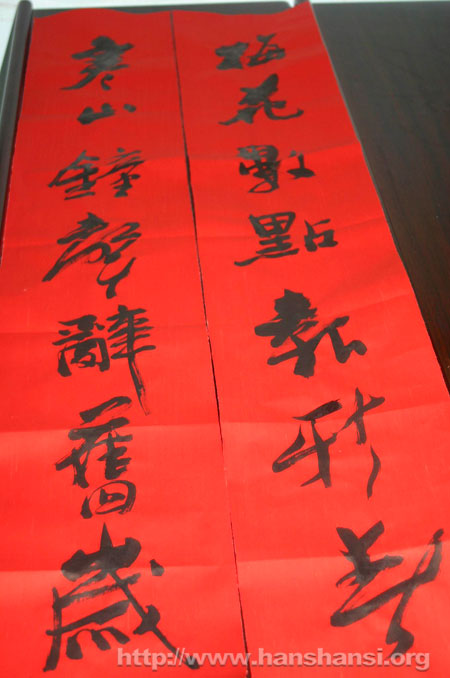 寒山鐘聲辭舊歲
梅花數點報新春
http://www.hanshansi.org